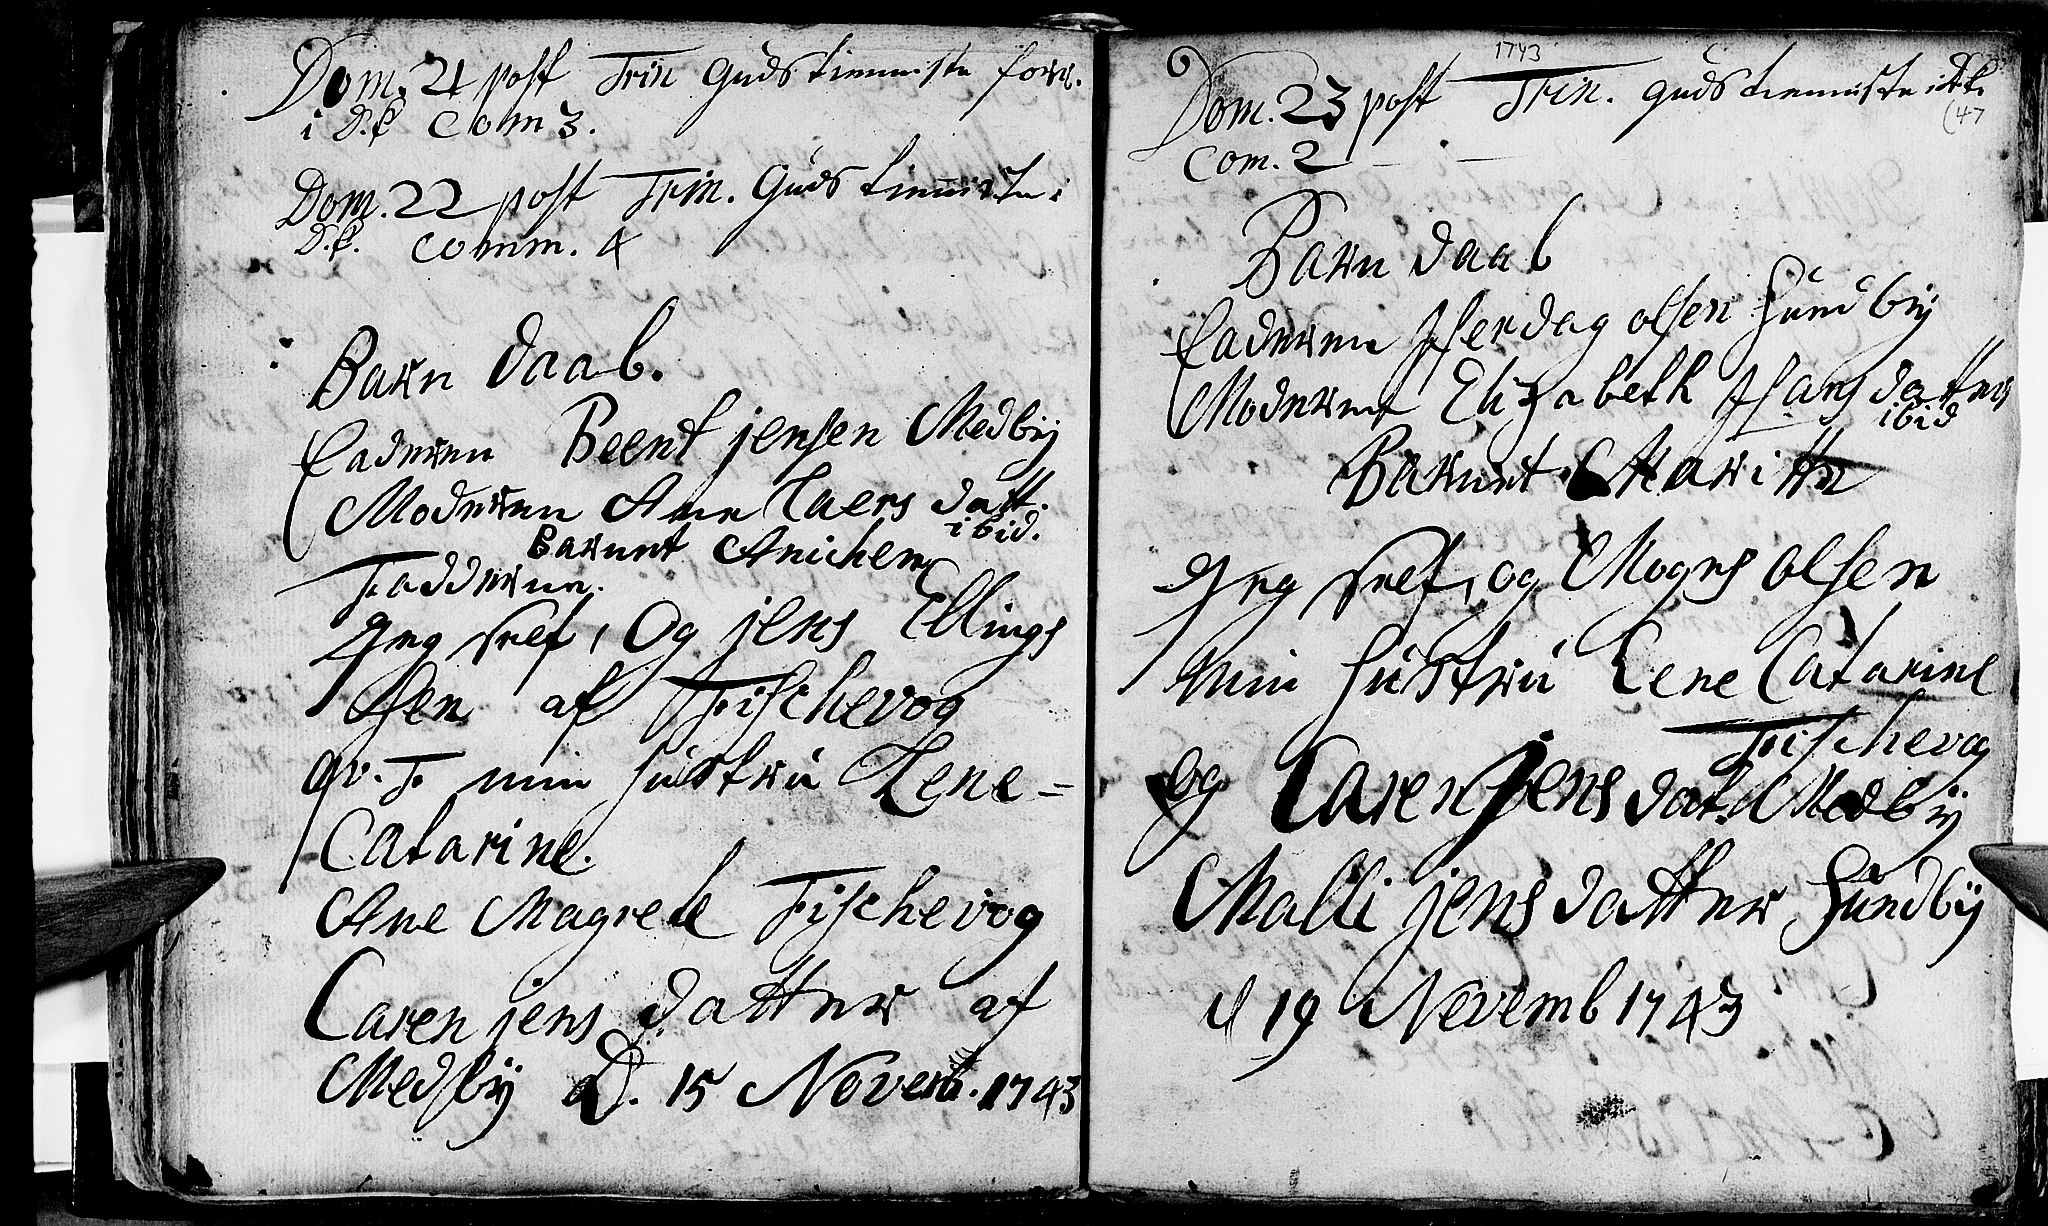 Dom. 21 post Trin Guds tienniste forr.
i D.k Com 3.
Dom. 22 post Trin. Guds tienniste i
D.k. Comm. 4
Barn daab.
Faderen Beent jensen Medbÿ
Moderen Ane Laers datt.
ibid.
Barnet Anichen
Fadderne.
Jeg self, Og jens Ellings
sen af Fischevog
qv. F min hustru Lene=
Catarine.
Ane Magrete Fischevog
Caren jens datter af
Medbÿ D. 15 Novemb. 1743
1743
Dom. 23 post Trin. Guds tienniste i D.k.
(47
Com. 2
Barn daab
Faderen Herdag olsen Sundbÿ
Moderen Elizabeth Hans datter
ibid
Barnet Maritte
Jeg self, og Mogns olsen
Min hustru Lene Catarine
Fischevog
og Caren Jens dat. Medbÿ
Malli jens datter Sundbÿ
d 19 Novemb 1743